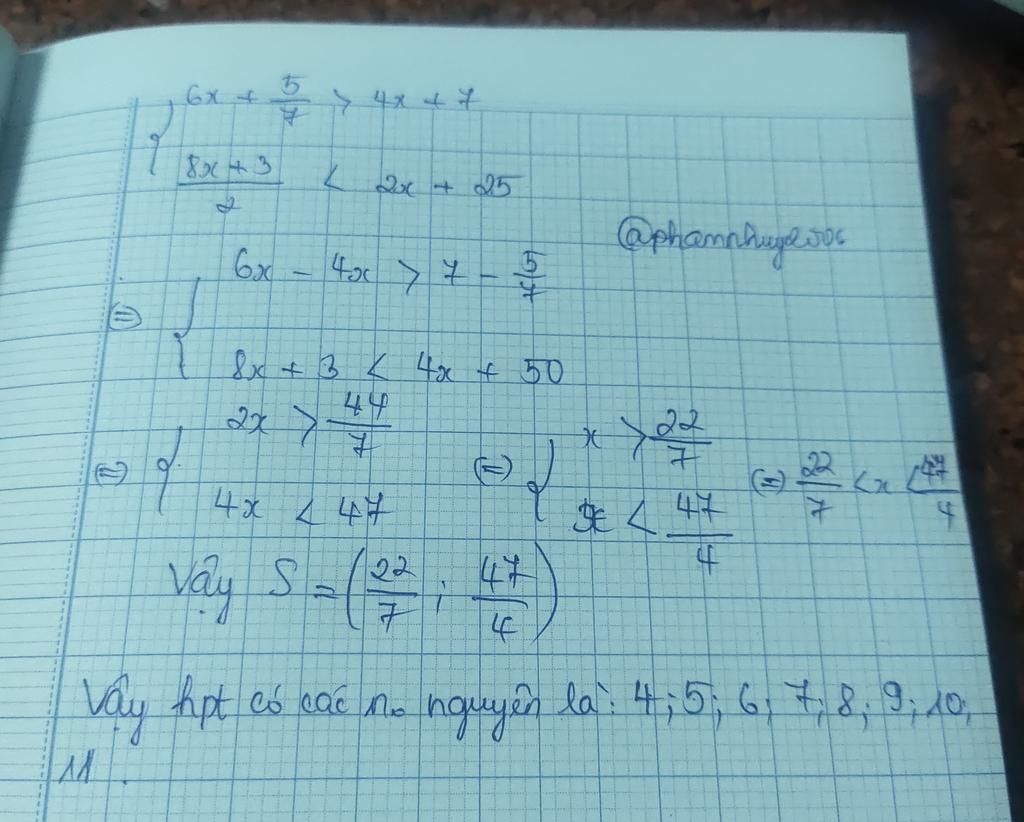 { 6x + 5/7 > 4x + 7
(8x + 3)/2 < 2x + 25
@phamnhuy2006
⇔ { 6x - 4x > 7 - 5/7
8x + 3 < 4x + 50
⇔ { 2x > 44/7
4x < 47
⇔ { x > 22/7
x < 47/4
⇔ 22/7 < x < 47/4
Vậy S = (22/7 ; 47/4)
Vậy hpt có các no nguyên là: 4; 5; 6; 7; 8; 9; 10;
11.